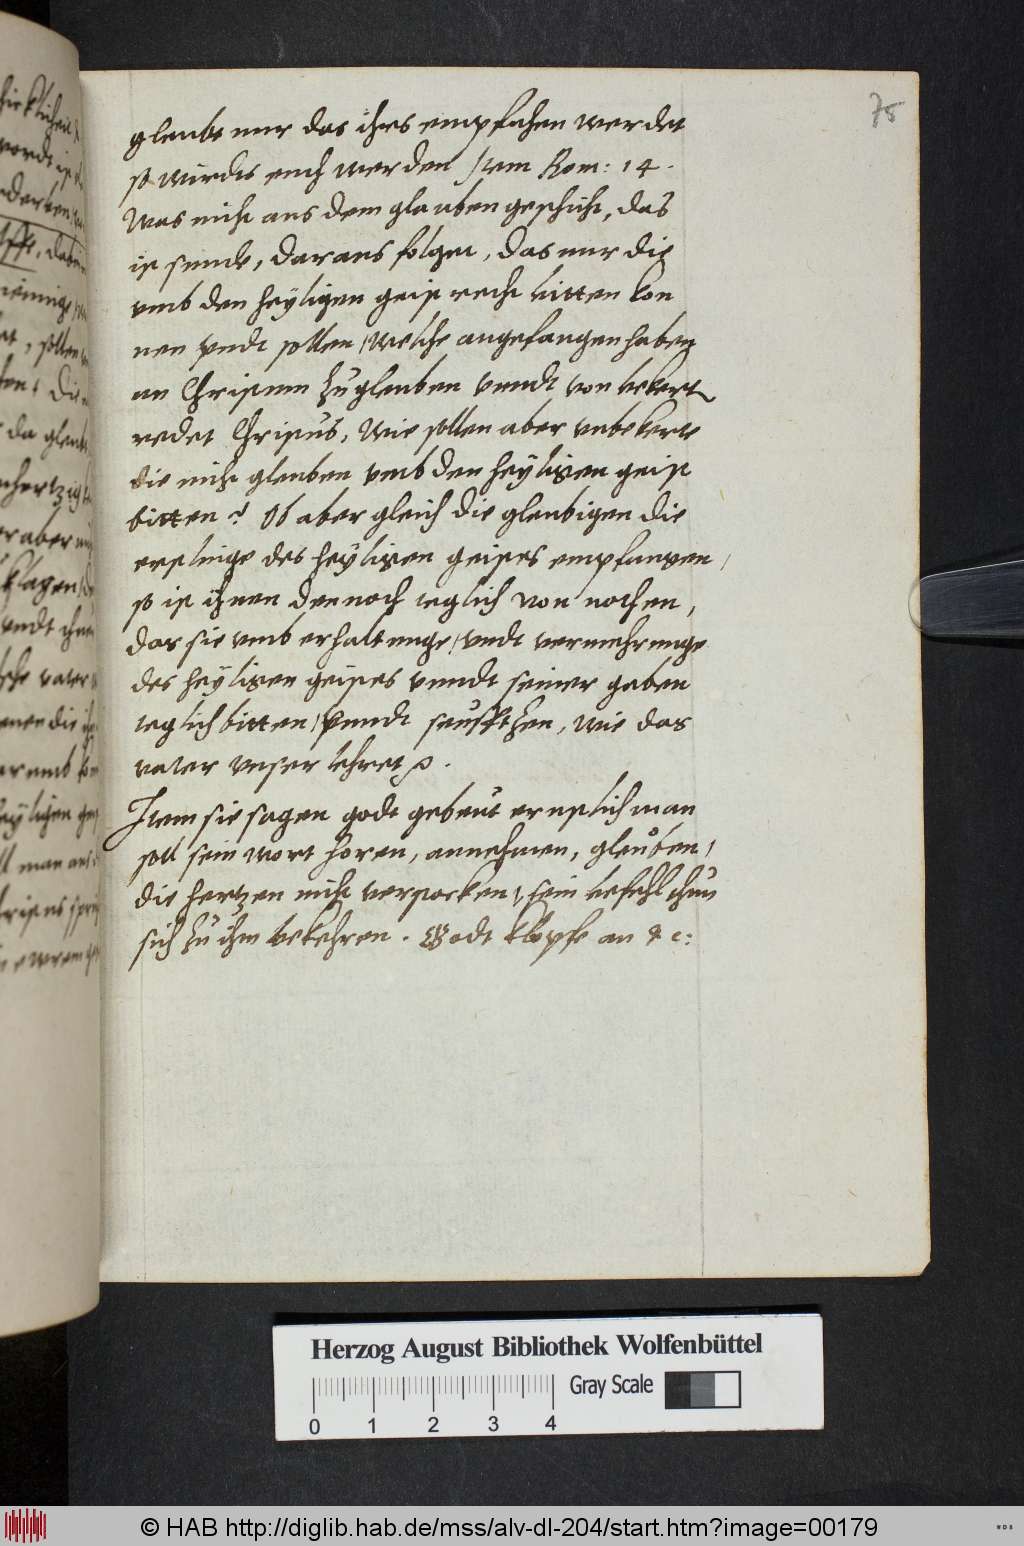 75
glaubt nur das ihrs empfahen werdet
so wirdts euch werden Item Rom: 14.
Was nicht aus dem glauben geschicht, das
ist sunde, daraus folget, das nur die
umb den heyligen geist recht bitten kon
nen undt sollen, welche angefangen haben
an Christum zu glauben unndt von bekert
redet Christus, Wie sollen aber unbekerte
die nicht glauben umb den heyligen geist
bitten? Ob aber gleich die glaubigen die
erstlinge des heyligen geistes empfangen,
so ist ihnen dennoch teglich von nothen,
das sie umb erhaltunge, undt vermehrunge
des heyligen geistes unndt seiner gaben
teglich bitten, unndt seufftzen, wie das
vater unser lehret.
Item sie sagen godt gebeut ernstlich man
soll sein wort horen, annehmen, glauben,
die hertzen nicht verstocken, sein befehl thun
sich zu ihm bekehren. Godt klopfe an &c:
Herzog August Bibliothek Wolfenbüttel
Gray Scale
0 1 2 3 4
© HAB http://diglib.hab.de/mss/alv-dl-204/start.htm?image=00179